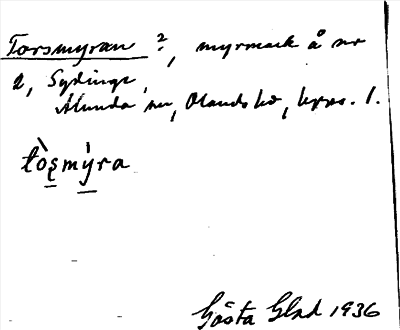 Torsmyran ?, myrmark å nr
2, Sydinge,
Alunda sn, Olands hd, Upps. l.
tòsmýra
Gösta Glad 1936